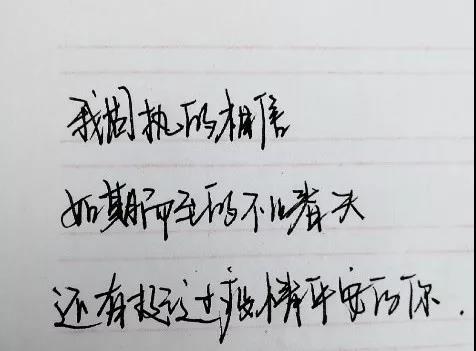 我固执的相信
如期而至的不止春天
还有挺过疫情平安的你.